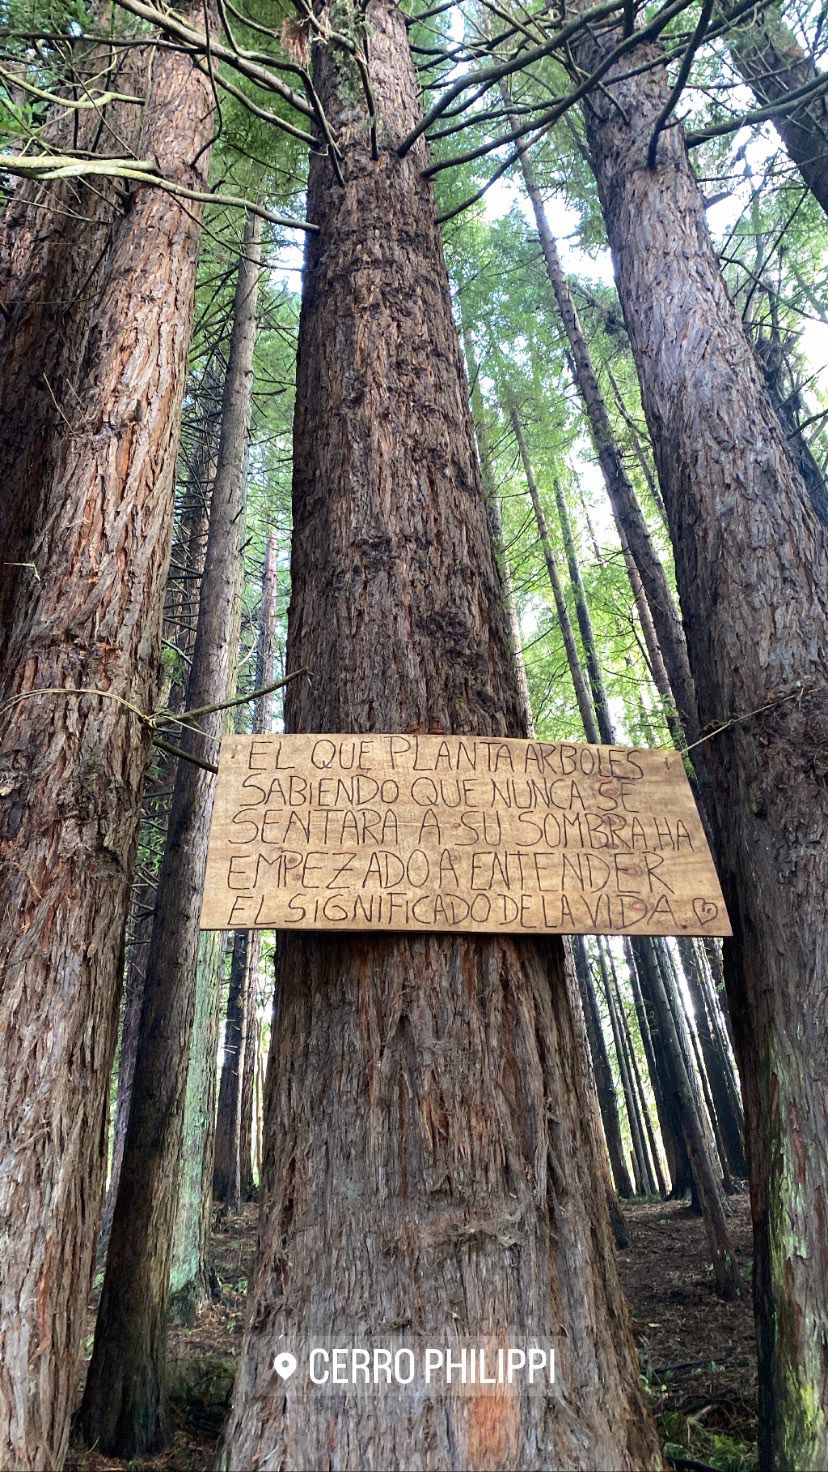 EL QUE PLANTA ARBOLES
SABIENDO QUE NUNCA SE
SENTARA A SU SOMBRA, HA
EMPEZADO A ENTENDER
EL SIGNIFICADO DE LA VIDA.
CERRO PHILIPPI